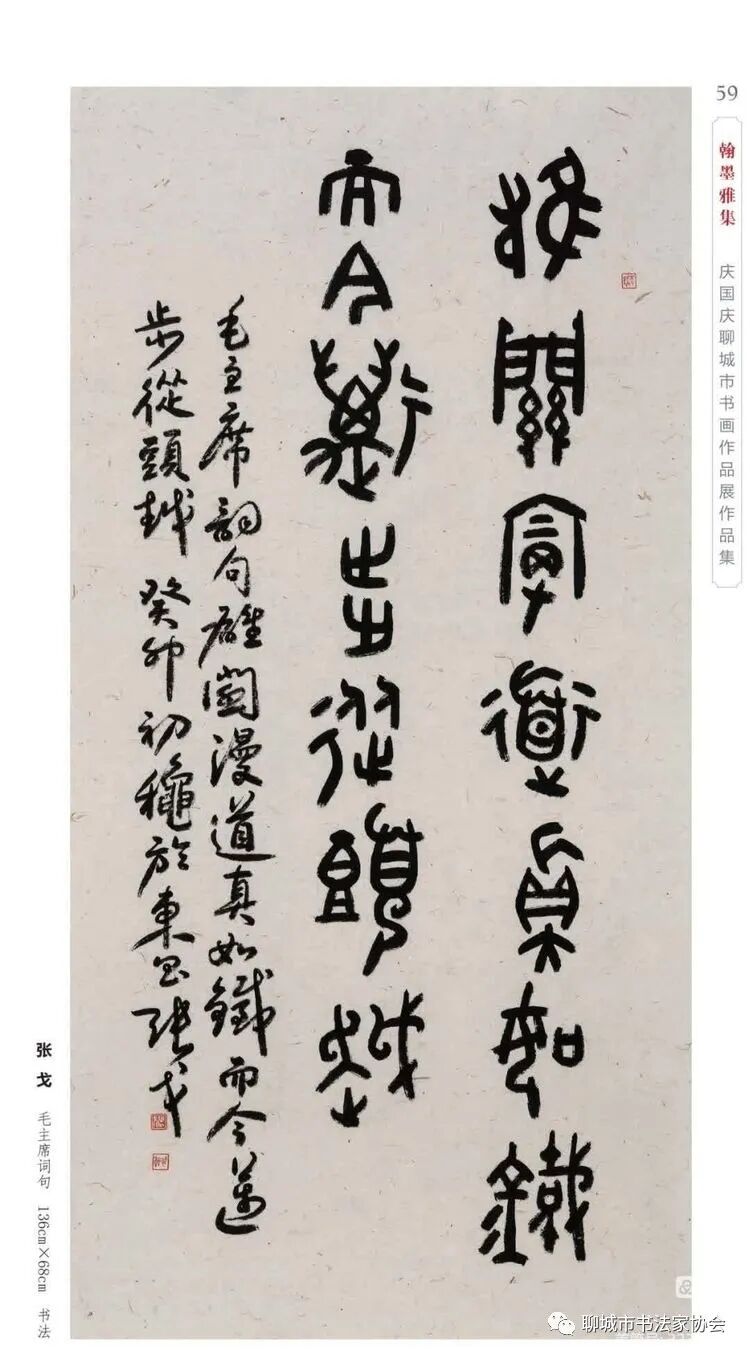 59
翰墨雅集 庆国庆聊城市书画作品展作品集
雄關漫道真如鐵
而今邁步從頭越
毛主席詞句雄關漫道真如鐵而今邁
步從頭越 癸卯初龝於東昌張戈
张戈 毛主席词句 136cm×68cm 书法
聊城市书法家协会